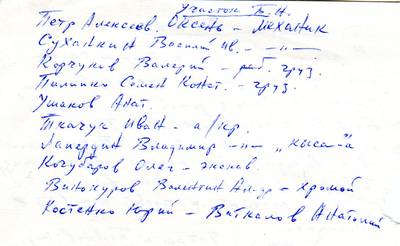 Участок Б. Н.
Петр Алексеев. Оксень – механик
Суханкин Василий Ив. – „ –
Корчуков Валерий – раб. груз.
Пилипко Семен Конст. – груз.
Ушаков Анат.
Ткачук Иван – а/кр.
Лапердин Владимир –„– „киса"-а
Кочубаров Олег – эконов.
Винокуров Валентин Ал-др – хромой
Костенко Юрий – Ваткалов Анатолий